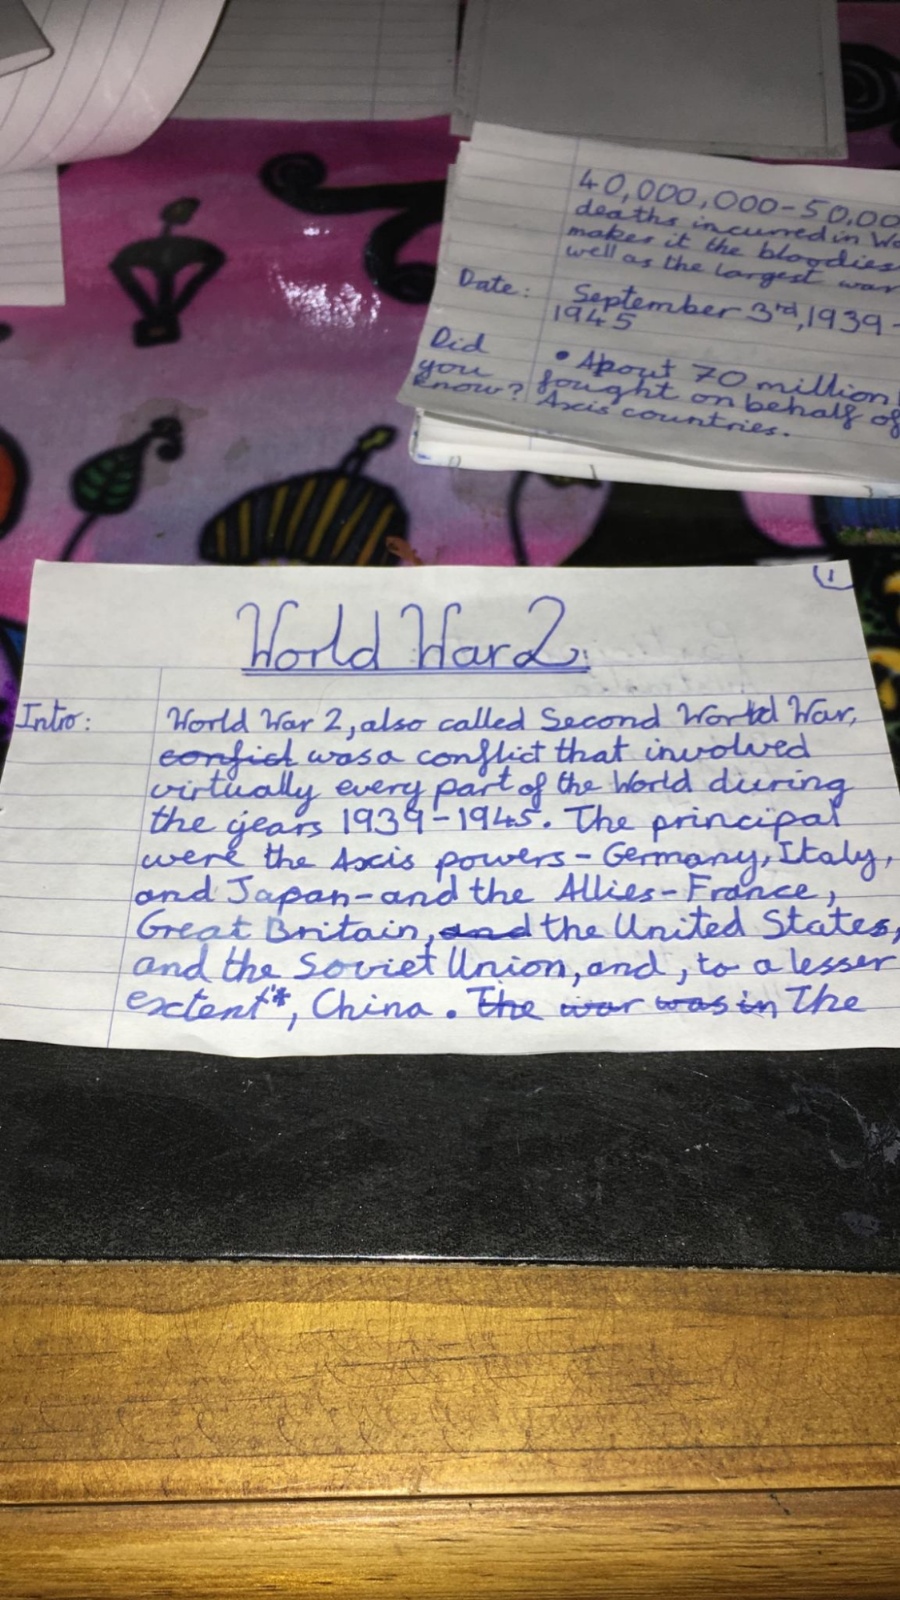 40,000,000-50,00
deaths incurred in Wo
makes it the bloodies
well as the largest war
Date: September 3rd, 1939-
1945
Did
you
know?
• About 70 million
fought on behalf of
Axis countries.
1
World War 2.
Intro: World War 2, also called Second World War,
confict was a conflict that involved
virtually every part of the World during
the years 1939-1945. The principal
were the Axis powers- Germany, Italy,
and Japan-and the Allies-France,
Great Britain, and the United States,
and the Soviet Union, and, to a lesser
extent"*, China. The war was in The